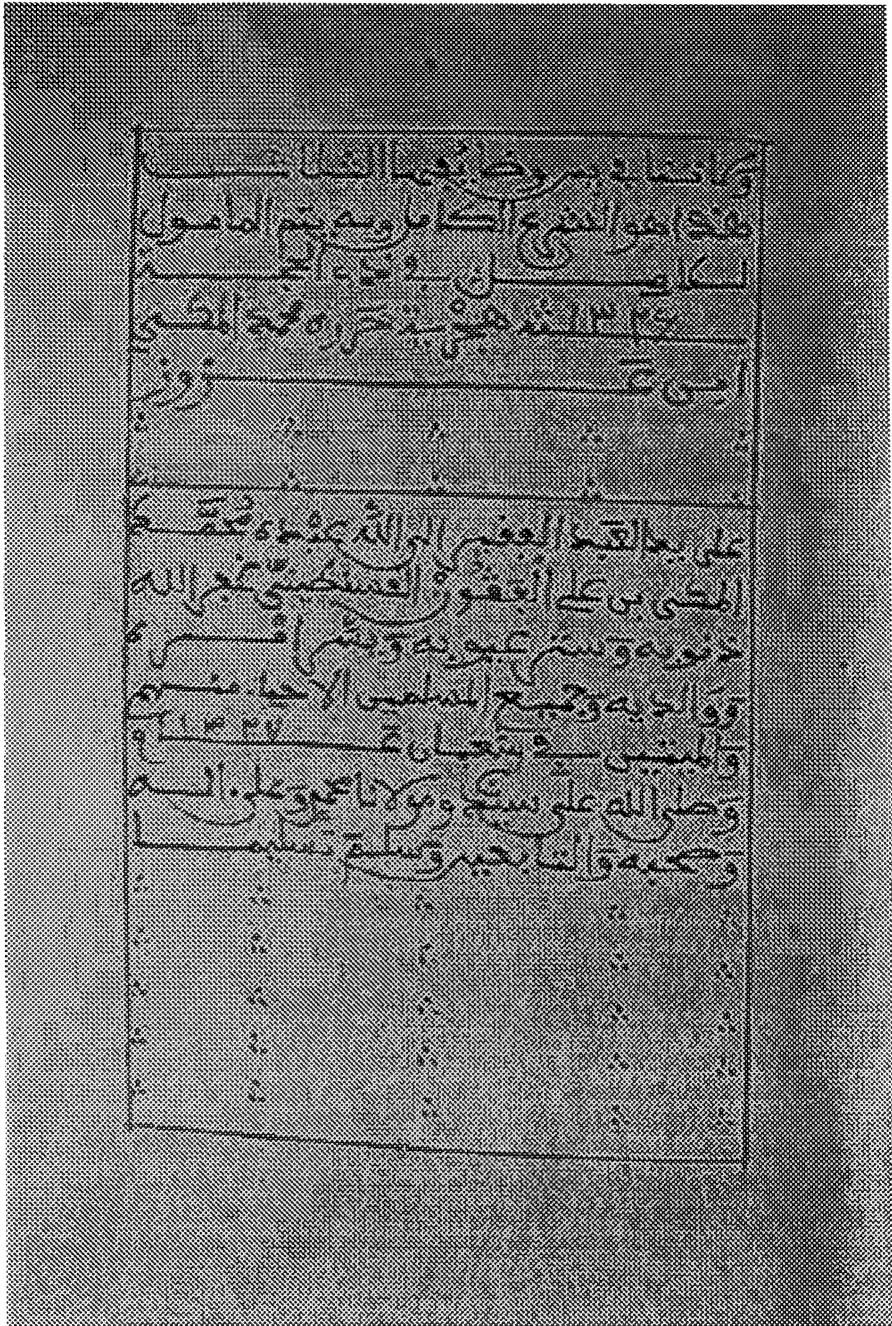 وكاتنا في يد وضايفها الثلاث
هذا هو الشرء الكامل وبه يتم المامول
لكل من في الحجة
سنة هجرية حرره محمد المكي
ابن عزوز
على يد العبد الفقير الى الله عبده محمد
المكي بن علي الفقون القسنطيني غفر الله
ذنوبه وستر عيوبه ويسر امره
ووالديه وجميع المسلمين الاحياء منهم
والميتين في شعبان عام ١٣٢٧
وصلى الله على سيدنا ومولانا محمد وعلى اله
وصحبه والتابعين وسلم تسليما